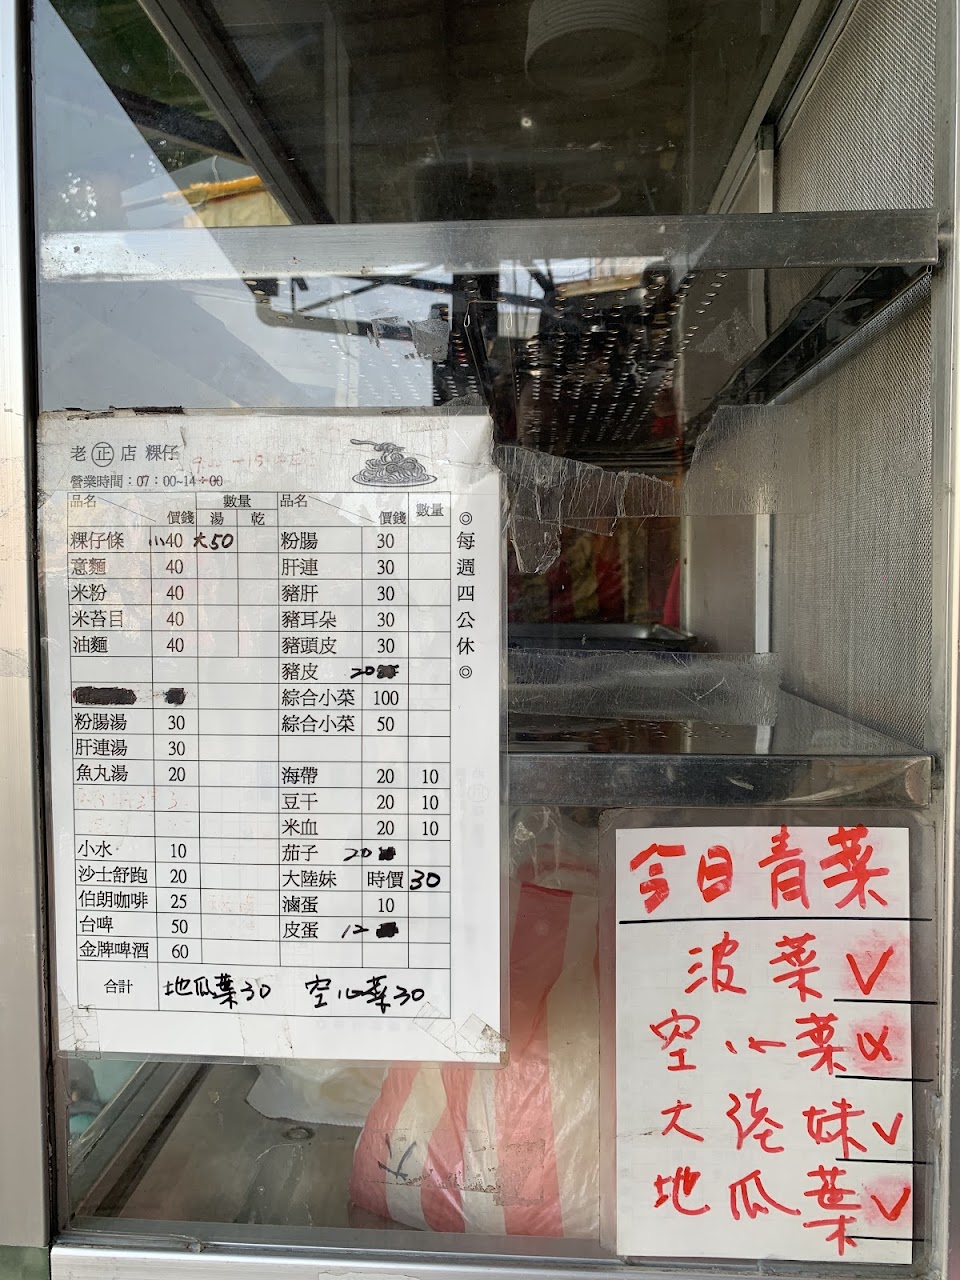 老 正 店 粿仔
營業時間：07：00~14：00
品名 價錢 數量 湯 乾 品名 價錢 數量
粿仔條 小40 大50 粉腸 30
意麵 40 肝連 30
米粉 40 豬肝 30
米苔目 40 豬耳朵 30
油麵 40 豬頭皮 30
豬皮 20
綜合小菜 100
粉腸湯 30 綜合小菜 50
肝連湯 30
魚丸湯 20 海帶 20 10
豆干 20 10
米血 20 10
小水 10 茄子 20
沙士舒跑 20 大陸妹 時價 30
伯朗咖啡 25 滷蛋 10
台啤 50 皮蛋 12
金牌啤酒 60
合計 地瓜葉30 空心菜30
◎每週四公休◎
今日青菜
波菜 V
空心菜 X
大陸妹 V
地瓜葉 V